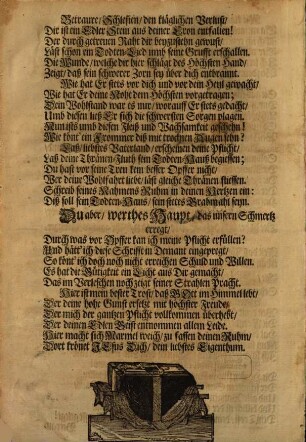 Betraure/ Schlesien/ den kläglichen Verlust/
Dir ist ein Edler Stein aus deiner Cron entfallen!
Der durch getreuen Raht dir beyzustehn gewust/
Läst schon ein Todten-Lied umb seine Grufft erschallen.
Die Wunde/ welche dir hier schlägt des Höchsten Hand/
Zeigt/ daß sein schwerer Zorn sey über dich entbrannt.
Wie hat Er stets vor dich und vor dein Heyl gewacht/
Wie hat Er deine Noht dem Höchsten vorgetragen;
Dein Wohlstand war es nur/ worauf Er stets gedacht/
Umb diesen ließ Er sich die schwersten Sorgen plagen.
Nun ists umb diesen Fleiß und Wachsamkeit geschehn!
Wie könt ein Frommer diß mit trocknen Augen sehn?
Laß/ liebstes Vaterland/ erscheinen deine Pflicht/
Laß deine Thränen-Fluth sein Todten-Hauß begiessen;
Du hast vor seine Treu kein besser Opffer nicht/
Wer deine Wohlfahrt liebt/ läst gleiche Thränen fliessen.
Schreib seines Nahmens Ruhm in deinen Hertzen ein:
Diß soll sein Todten-Haus/ sein stetes Grabmahl seyn.
Du aber/ werthes Haupt/ das unsern Schmertz
erregt/
Durch was vor Opffer kan ich meine Pflicht erfüllen?
Und hätt' ich diese Schrifft in Demant eingeprägt/
So könt' ich doch noch nicht erreichen Schuld und Willen.
Es hat die Gütigkeit ein Licht aus Dir gemacht/
Das im Verleschen noch zeiget seiner Strahlen Pracht.
Hier ist mein bester Trost/ daß GOtt im Himmel lebt/
Der deine hohe Gunst ersetzt mit höchster Freude/
Der mich der gantzen Pflicht vollkommen überhebt/
Der deinen Edlen Geist entnommen allem Leide.
Hier macht sich Marmel weich/ zu fassen deinen Ruhm/
Dort krönet JEsus Dich/ dem liebstes Eigenthum.